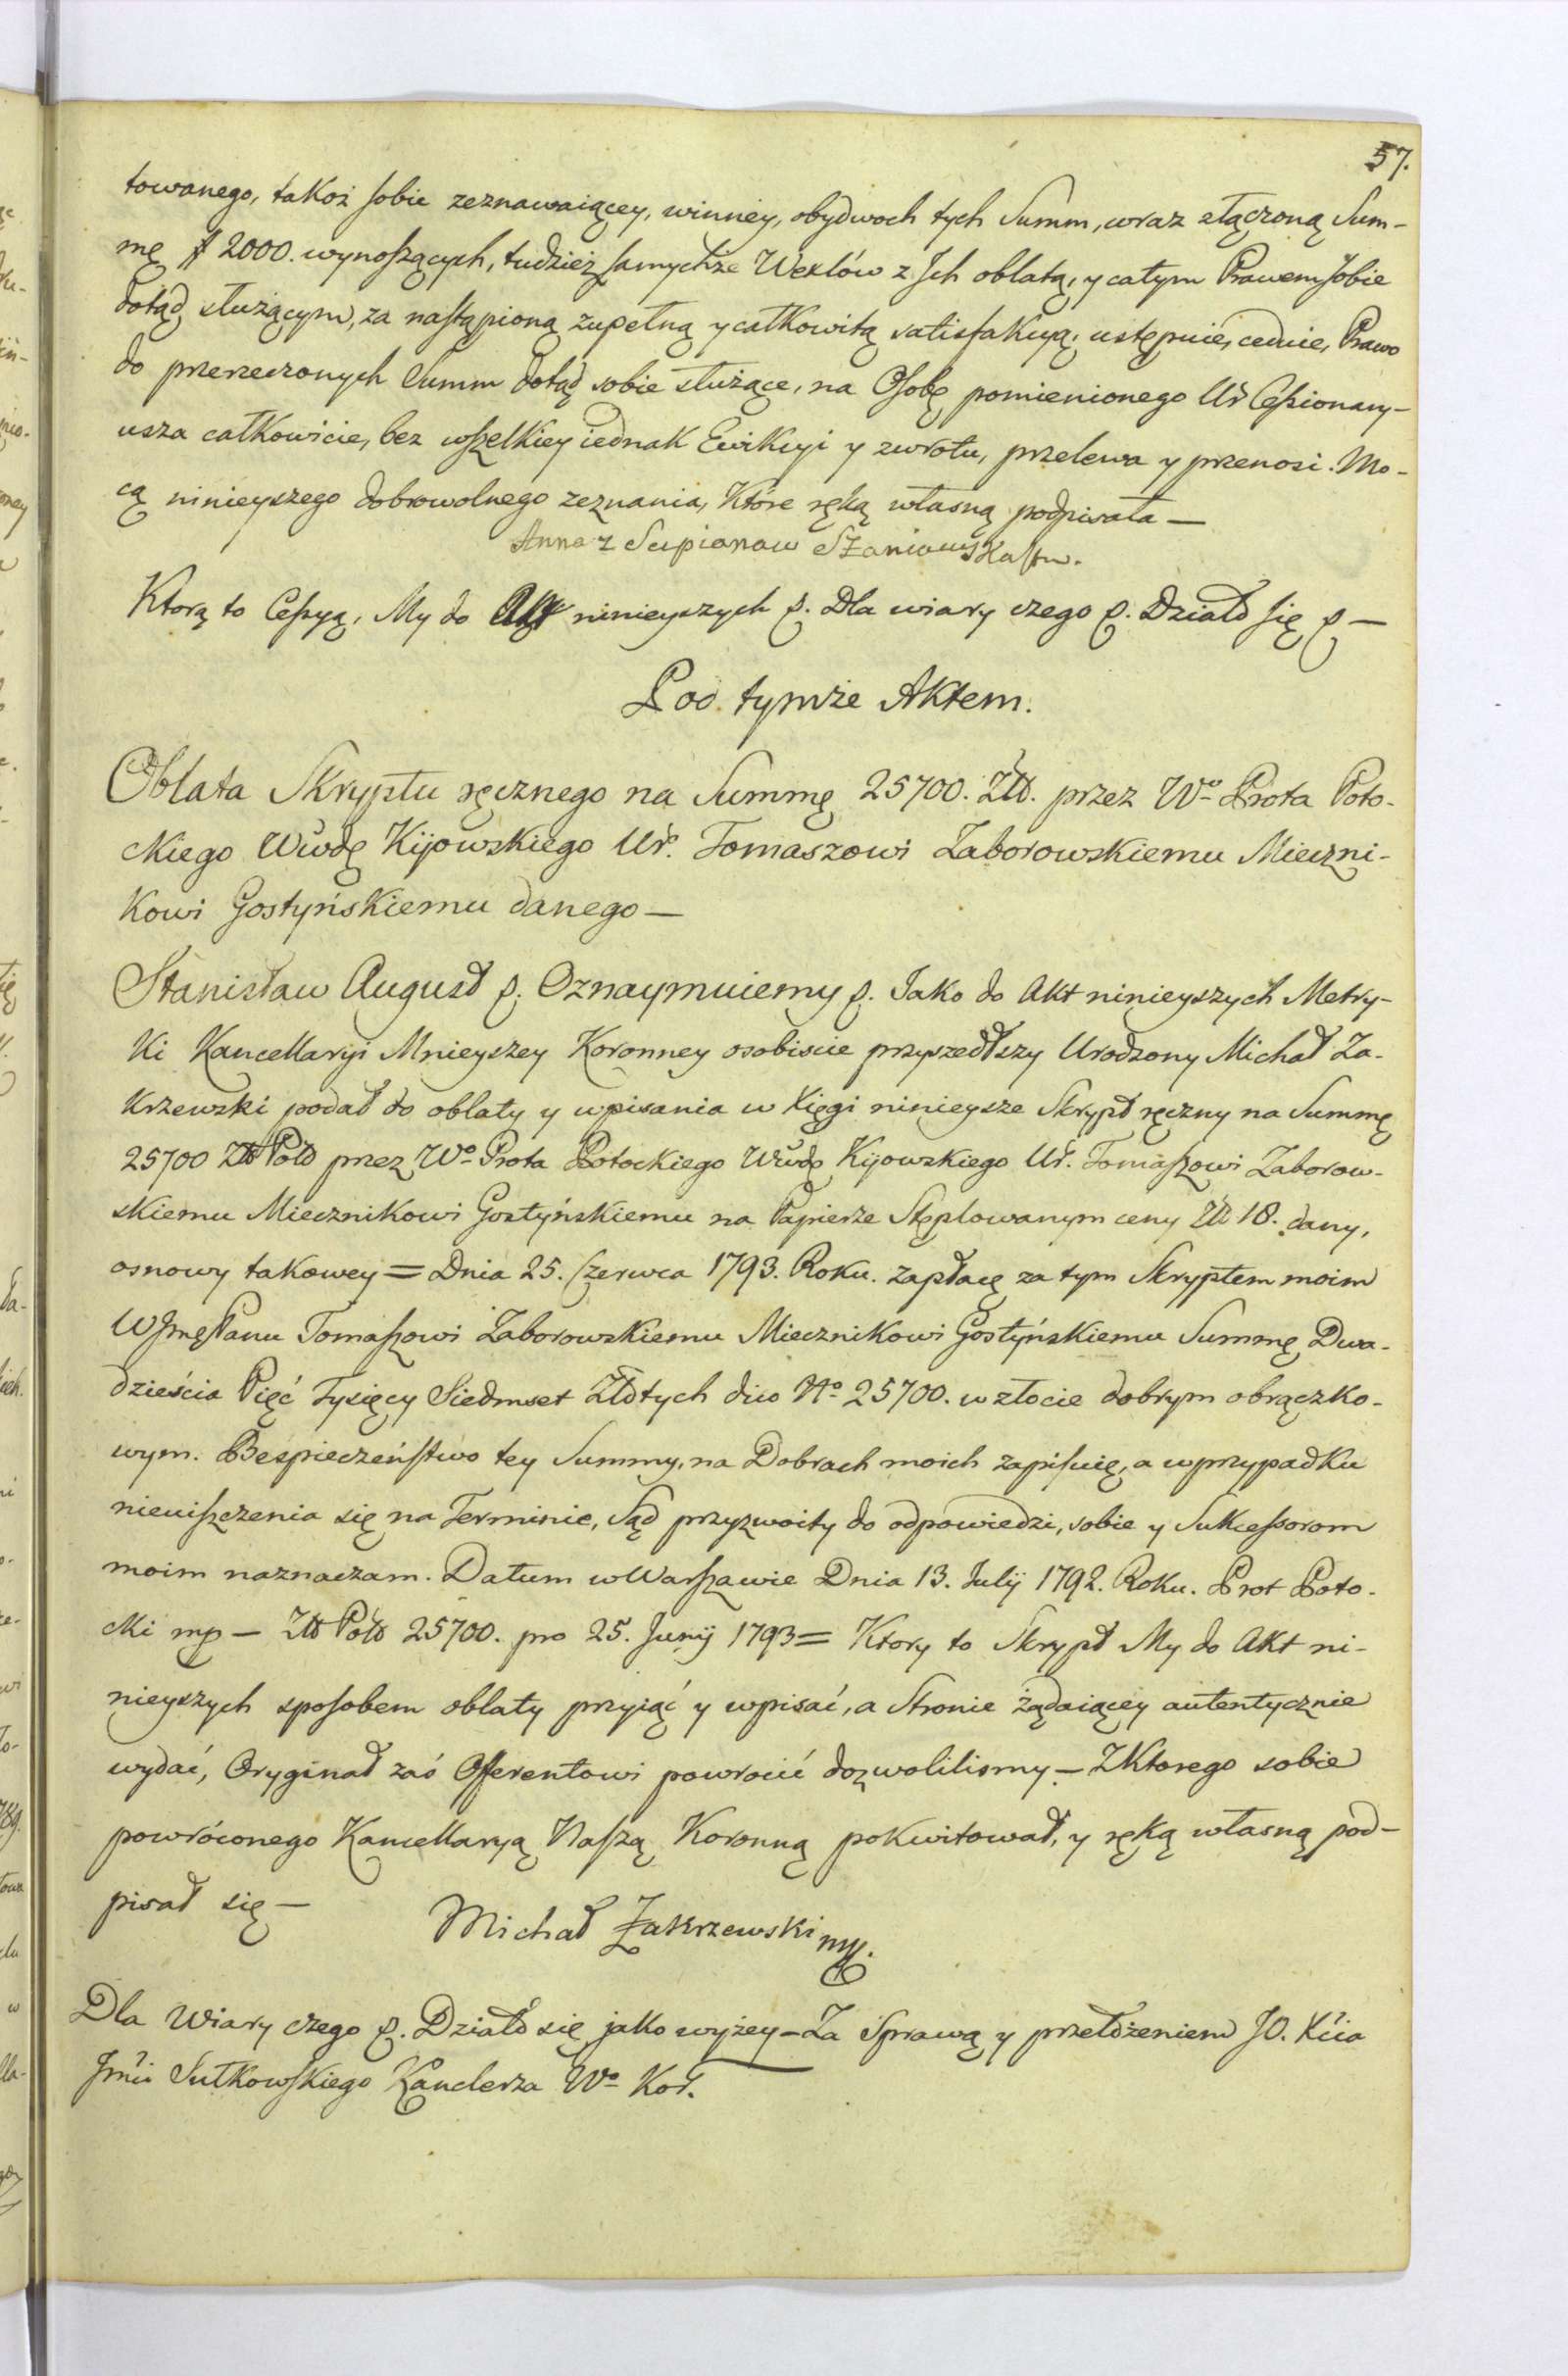 57.
towanego, takoż sobie zeznawaiącey, winney, obydwoch tych Summ, wraz złączoną Sum-
mę # 2000. wynoszących, tudzież samychże Wexlów z Ich oblatą, y całym Prawem sobie
dotąd służącym, za nastąpioną zupełną y całkowitą satisfakcyą, ustępuie, ceduie, Prawo
do przerzeczonych Summ dotąd sobie służące, na Osobę pomienionego Ur Cessionary-
usza całkowicie, bez wszelkiey iednak Ewikcyi y zwrotu, przelewa y przenosi. Mo-
cą ninieyszego dobrowolnego zeznania, które ręką własną podpisała —
Anna z Scipionow Szaniawska
Ktorą to Cessyą, My do Akt ninieyszych p. Dla wiary czego p. Działo się p —
Pod tymże Aktem.
Oblata Skryptu ręcznego na Summę 25700. Złł. przez Wo Prota Poto-
ckiego Wwdę Kijowskiego Ur. Tomaszowi Zaborowskiemu Mieczni-
kowi Gostyńskiemu danego —
Stanisław August p. Oznaymuiemy p. Jako do Akt ninieyszych Metry-
ki Kancellaryi Mnieyszey Koronney osobiscie przyszedłszy Urodzony Michał Za-
krzewski podał do oblaty y wpisania w Xięgi ninieysze Skrypt ręczny na Summę
25700 Złł Pols przez Wo Prota Potockiego Wwdę Kijowskiego Ur. Tomaszowi Zaborow-
skiemu Miecznikowi Gostyńskiemu na Papierze Stęplowanym ceny Zł 18. dany,
osnowy takowey = Dnia 25. Czerwca 1793. Roku. zapłacę za tym Skryptem moim
WJmę Panu Tomaszowi Zaborowskiemu Miecznikowi Gostyńskiemu Summę Dwa-
dzieścia Pięć Tysięcy Siedmset Złotych dico No 25700. w złocie dobrym obrączko-
wym. Bespieczeństwo tey Summy, na Dobrach moich zapisuię, a w przypadku
nieuiszczenia się na Terminie, Sąd przyzwoity do odpowiedzi, sobie y Sukcessorom
moim naznaczam. Datum w Warszawie Dnia 13. Julij 1792. Roku. Prot Poto-
cki mp — Złł Pols 25700. pro 25. Junij 1793 = Ktory to Skrypt My do Akt ni-
nieyszych sposobem oblaty przyiąć y wpisać, a Stronie żądaiącey autentycznie
wydać, Oryginał zaś Offerentowi powrocić dozwolilismy — Z Ktorego sobie
powróconego Kancellaryą Naszą Koronną pokwitował, y ręką własną pod-
pisał się —
Michał Zakrzewski mp.
Dla Wiary czego p. Działo się jako wyżey — Za Sprawą y przełożeniem JO. Xcia
Jmci Sułkowskiego Kanclerza Wo Kor.